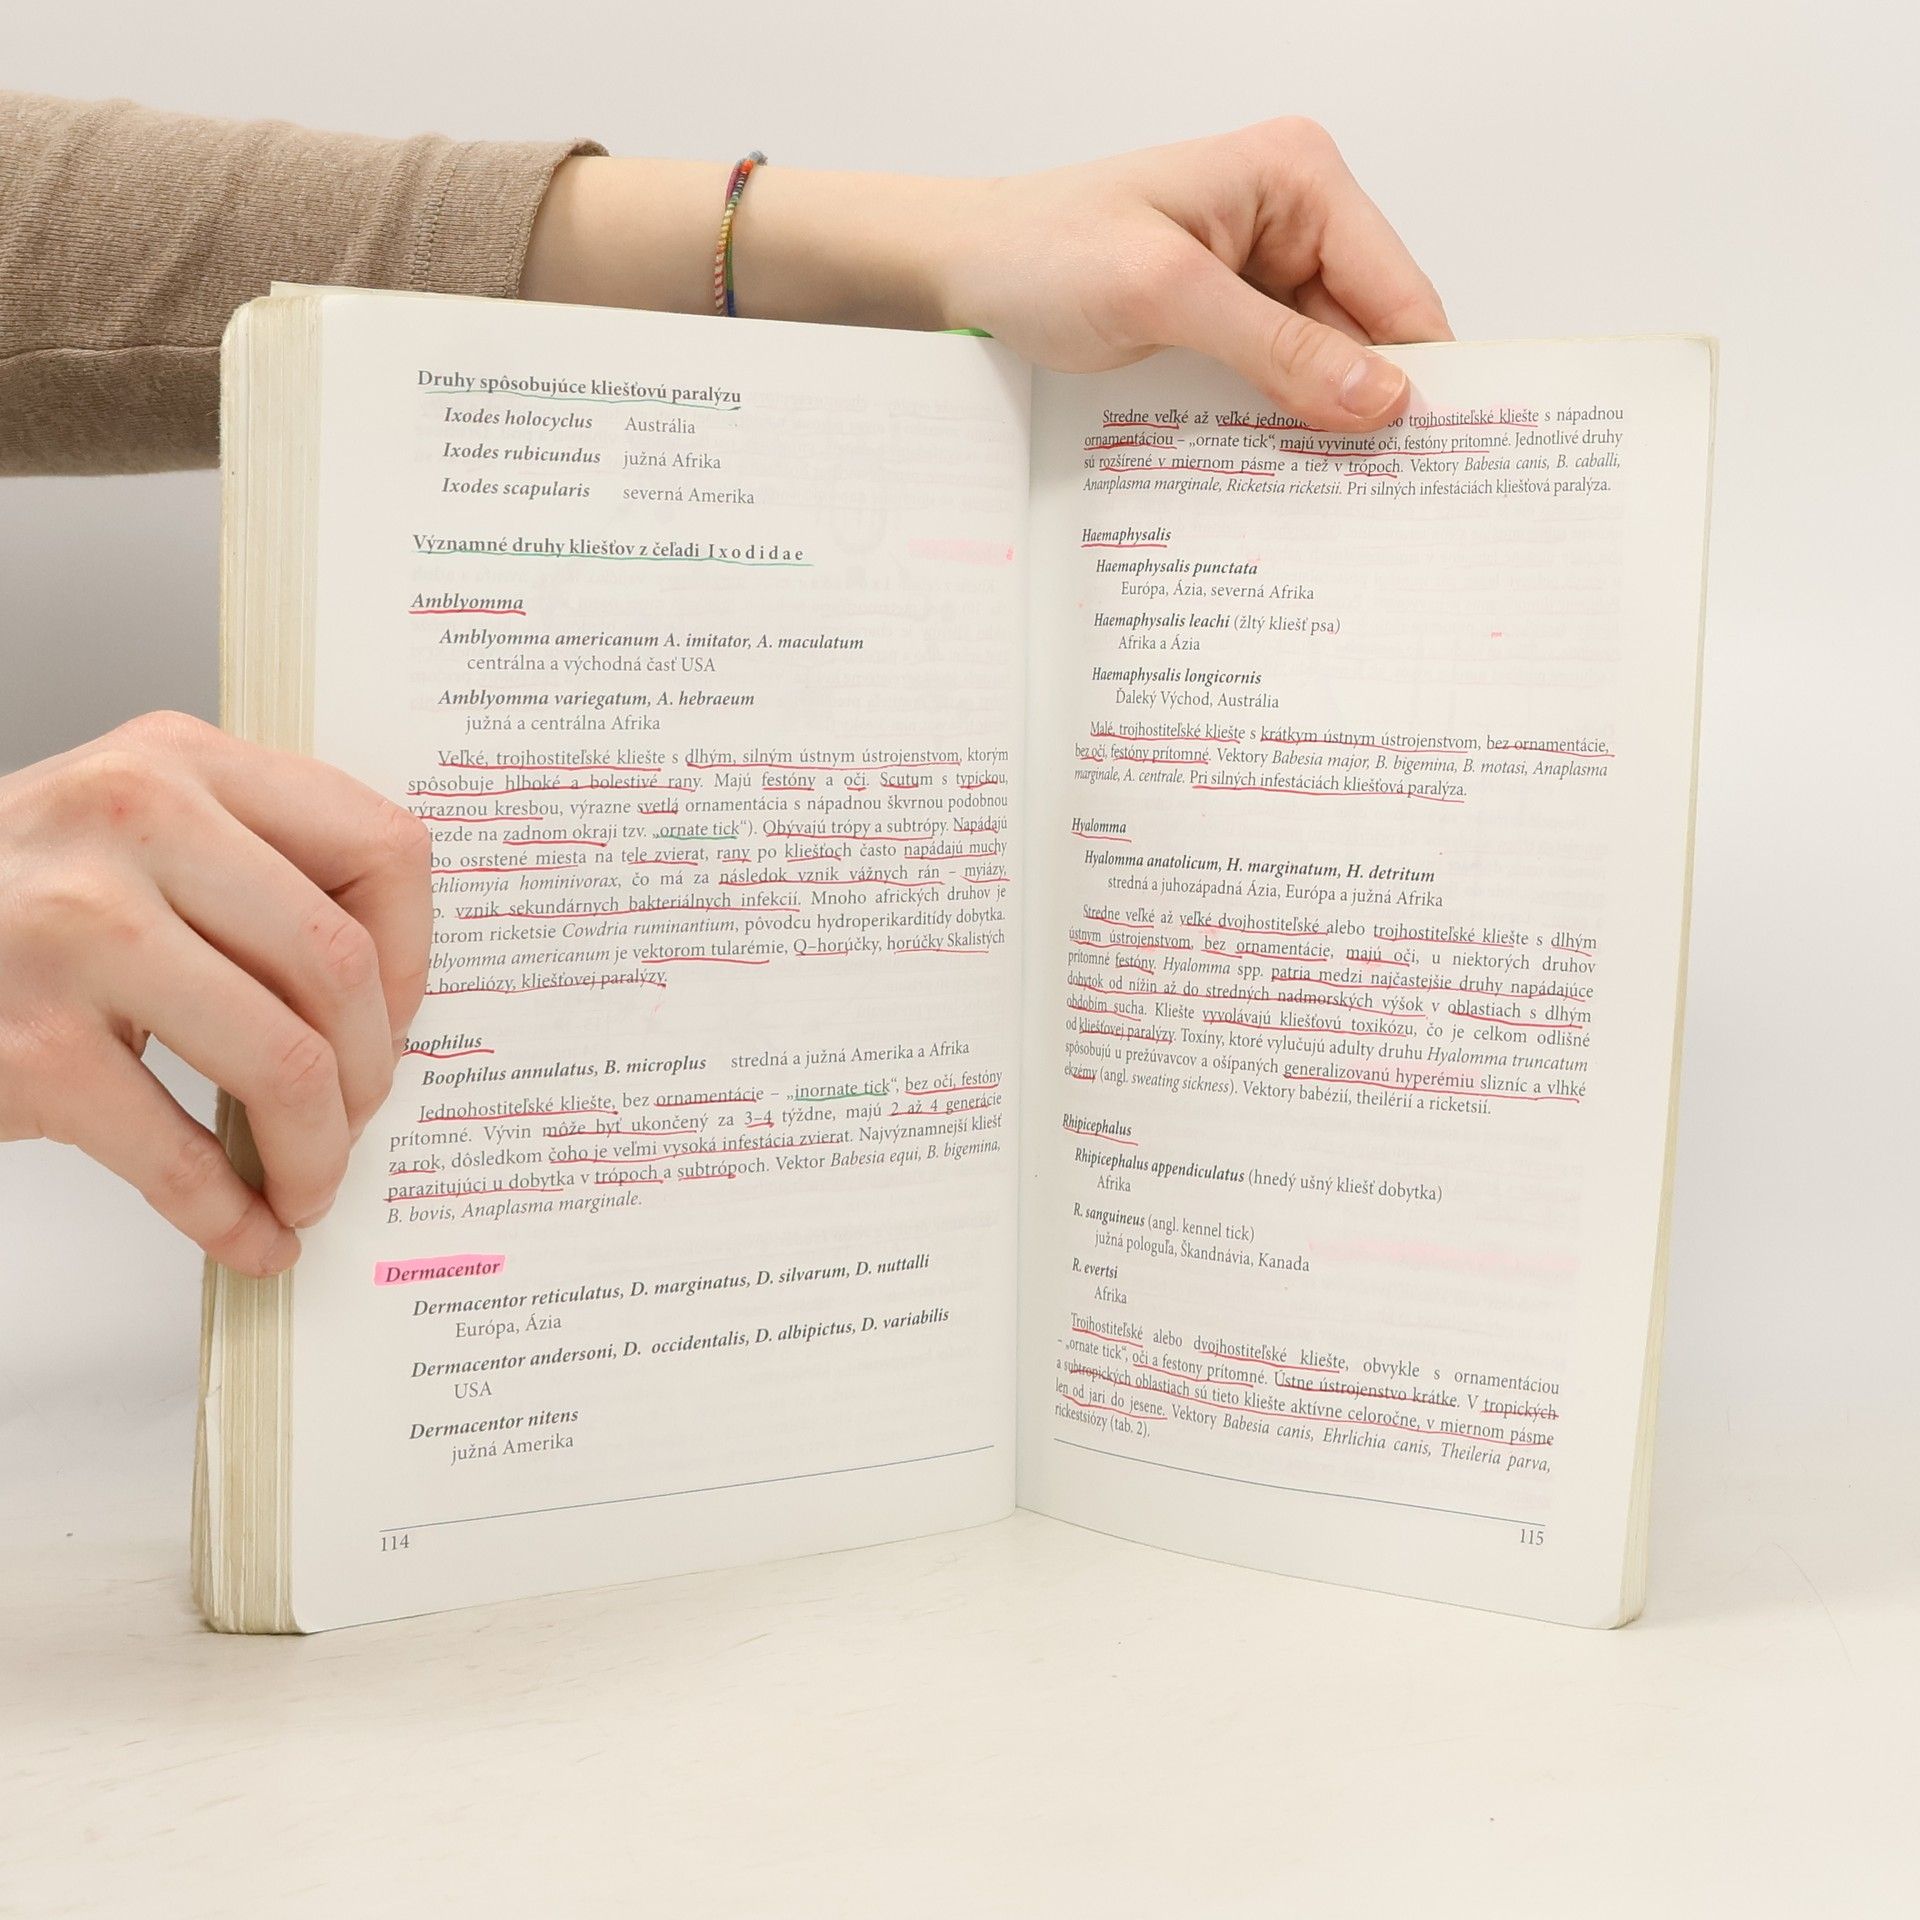 Druhy spôsobujúce kliešťovú paralýzu
Ixodes holocyclus Austrália
Ixodes rubicundus južná Afrika
Ixodes scapularis severná Amerika
Významné druhy kliešťov z čeľadi Ixodidae
Amblyomma
Amblyomma americanum A. imitator, A. maculatum
centrálna a východná časť USA
Amblyomma variegatum, A. hebraeum
južná a centrálna Afrika
Veľké, trojhostiteľské kliešte s dlhým, silným ústnym ústrojenstvom, ktorým
spôsobuje hlboké a bolestivé rany. Majú festóny a oči. Scutum s typickou,
výraznou kresbou, výrazne svetlá ornamentácia s nápadnou škvrnou podobnou
iezde na zadnom okraji tzv. „ornate tick“). Obývajú trópy a subtrópy. Napádajú
bo osrstené miesta na tele zvierat, rany po kliešťoch často napádajú muchy
chliomyia hominivorax, čo má za následok vznik vážnych rán – myiázy,
p. vznik sekundárnych bakteriálnych infekcií. Mnoho afrických druhov je
torom ricketsie Cowdria ruminantium, pôvodcu hydroperikarditídy dobytka.
blyomma americanum je vektorom tularémie, Q–horúčky, horúčky Skalistých
r, boreliózy, kliešťovej paralýzy.
Boophilus
Boophilus annulatus, B. microplus stredná a južná Amerika a Afrika
Jednohostiteľské kliešte, bez ornamentácie – „inornate tick“, bez očí, festóny
prítomné. Vývin môže byť ukončený za 3–4 týždne, majú 2 až 4 generácie
za rok, dôsledkom čoho je veľmi vysoká infestácia zvierat. Najvýznamnejší kliešť
parazitujúci u dobytka v trópoch a subtrópoch. Vektor Babesia equi, B. bigemina,
B. bovis, Anaplasma marginale.
Dermacentor
Dermacentor reticulatus, D. marginatus, D. silvarum, D. nuttalli
Európa, Ázia
Dermacentor andersoni, D. occidentalis, D. albipictus, D. variabilis
USA
Dermacentor nitens
južná Amerika
114
Stredne veľké až veľké jedno bo trojhostiteľské kliešte s nápadnou
ornamentáciou – „ornate tick“, majú vyvinuté oči, festóny prítomné. Jednotlivé druhy
sú rozšírené v miernom pásme a tiež v trópoch. Vektory Babesia canis, B. caballi,
Ananplasma marginale, Ricketsia ricketsii. Pri silných infestáciách kliešťová paralýza.
Haemaphysalis
Haemaphysalis punctata
Európa, Ázia, severná Afrika
Haemaphysalis leachi (žltý kliešť psa)
Afrika a Ázia
Haemaphysalis longicornis
Ďaleký Východ, Austrália
Malé, trojhostiteľské kliešte s krátkym ústnym ústrojenstvom, bez ornamentácie,
bez očí, festóny prítomné. Vektory Babesia major, B. bigemina, B. motasi, Anaplasma
marginale, A. centrale. Pri silných infestáciách kliešťová paralýza.
Hyalomma
Hyalomma anatolicum, H. marginatum, H. detritum
stredná a juhozápadná Ázia, Európa a južná Afrika
Stredne veľké až veľké dvojhostiteľské alebo trojhostiteľské kliešte s dlhým
ústnym ústrojenstvom, bez ornamentácie, majú oči, u niektorých druhov
prítomné festóny. Hyalomma spp. patria medzi najčastejšie druhy napádajúce
dobytok od nížin až do stredných nadmorských výšok v oblastiach s dlhým
obdobím sucha. Kliešte vyvolávajú kliešťovú toxikózu, čo je celkom odlišné
od kliešťovej paralýzy. Toxíny, ktoré vylučujú adulty druhu Hyalomma truncatum
spôsobujú u prežúvavcov a ošípaných generalizovanú hyperémiu slizníc a vlhké
ekzémy (angl. sweating sickness). Vektory babézií, theilérií a ricketsií.
Rhipicephalus
Rhipicephalus appendiculatus (hnedý ušný kliešť dobytka)
Afrika
R. sanguineus (angl. kennel tick)
južná pologuľa, Škandnávia, Kanada
R. evertsi
Afrika
Trojhostiteľské alebo dvojhostiteľské kliešte, obvykle s ornamentáciou
– „ornate tick“, oči a festony prítomné. Ústne ústrojenstvo krátke. V tropických
a subtropických oblastiach sú tieto kliešte aktívne celoročne, v miernom pásme
len od jari do jesene. Vektory Babesia canis, Ehrlichia canis, Theileria parva,
rickestsiózy (tab. 2).
115